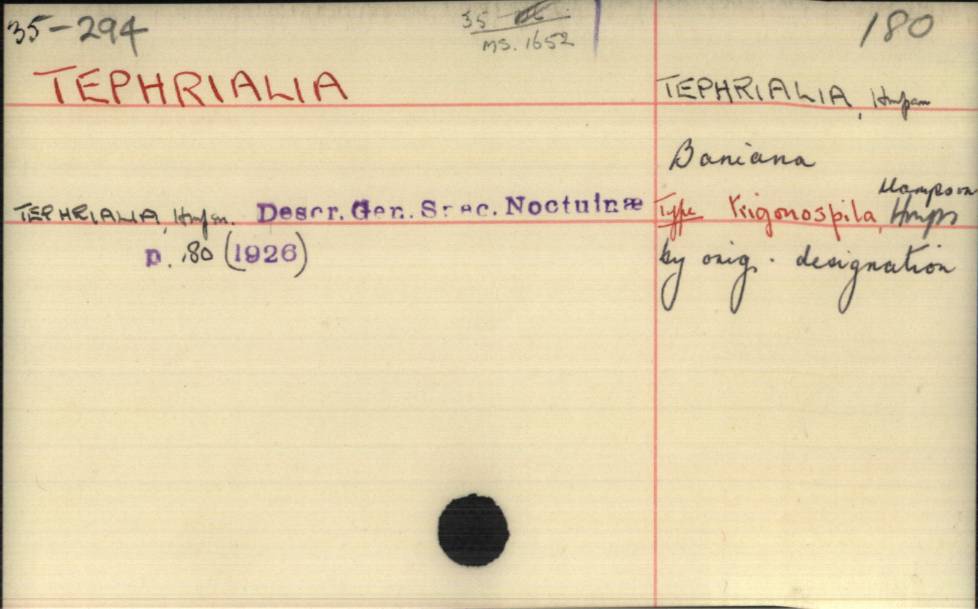 35-294
35
MS. 1652
180
TEPHRIALIA
TEPHRIALIA, Hmpsn
Baniana
TEPHRIALIA, Hmpsn. Descr. Gen. Spec. Noctuinæ
p. 180 (1926)
Type trigonospila, Hmps
Hampson
by orig. designation